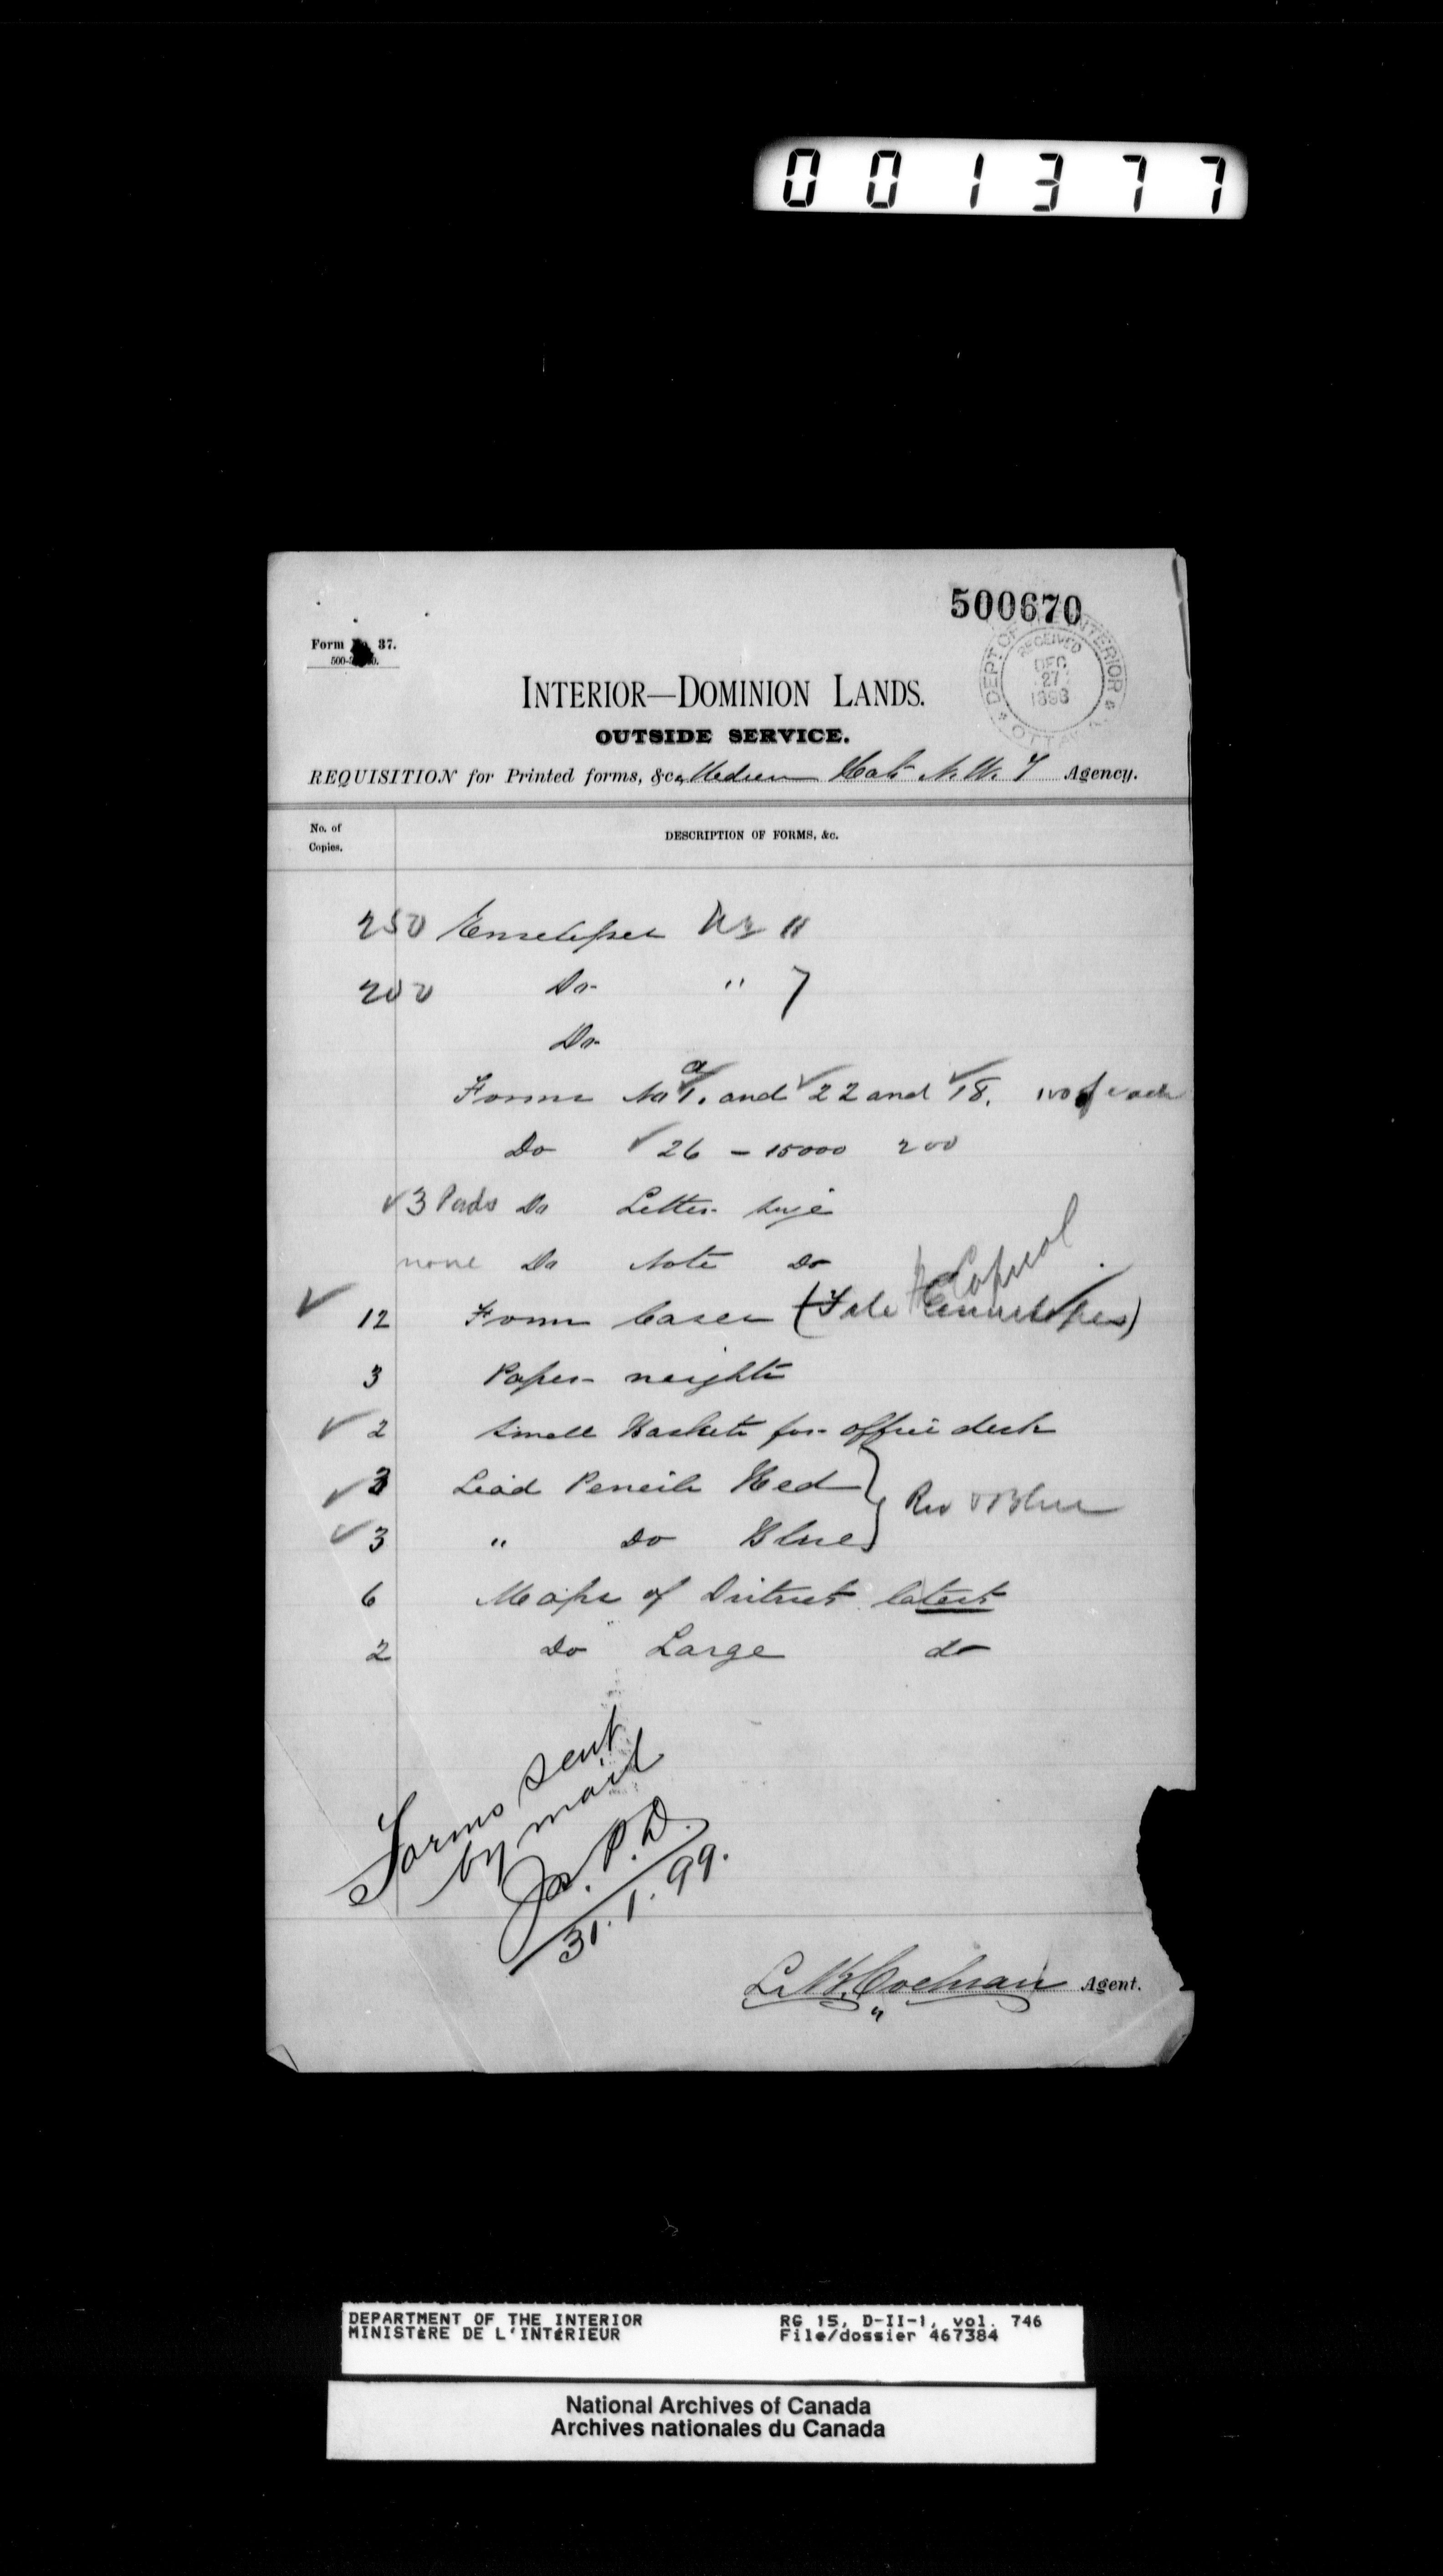 001377
500670
Form No. 37.
DEPT OF THE INTERIOR
RECEIVED
DEC
27
1898
OTTAWA
INTERIOR—DOMINION LANDS.
OUTSIDE SERVICE.
REQUISITION for Printed forms, &c., Medicine Hat N.W.T Agency.
No. of
Copies.
DESCRIPTION OF FORMS, &c.
250 Envelopes No 11
200 Do " 7
Do
Forms No 1. a and 22 and 18. of each
Do 26 - 15000 200
3 Pads Do Letter size
none Do Note Do
12 Form Cases (File Envelopes)
3 Paper weights
2 Small Baskets for office desk
3 Lead Pencils Red
Red & Blue
3 " Do Blue
6 Maps of District latest
2 Do Large do
Forms sent
by mail
P.D.
31.1.99.
Cochran Agent.
DEPARTMENT OF THE INTERIOR
MINISTÈRE DE L'INTÉRIEUR
RG 15, D-II-1, vol. 746
File/dossier 467384
National Archives of Canada
Archives nationales du Canada